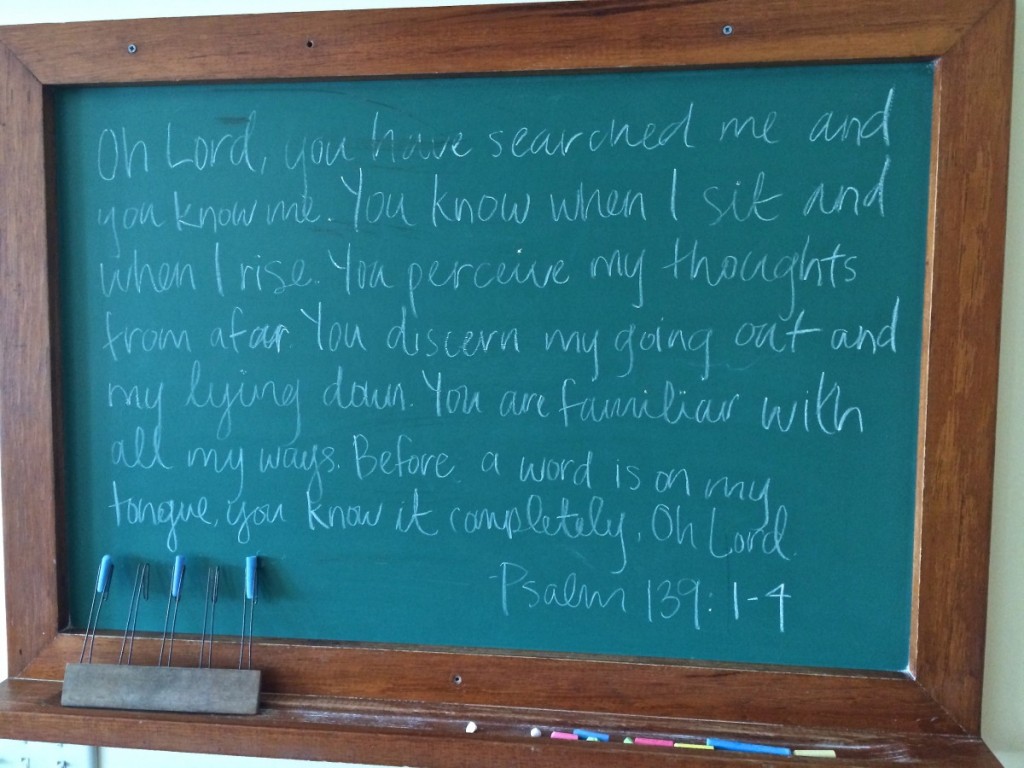 Oh Lord, you have searched me and
you know me. You know when I sit and
when I rise. You perceive my thoughts
from afar You discern my going out and
my lying down. You are familiar with
all my ways. Before a word is on my
tongue, you know it completely, Oh Lord.
Psalm 139:1-4